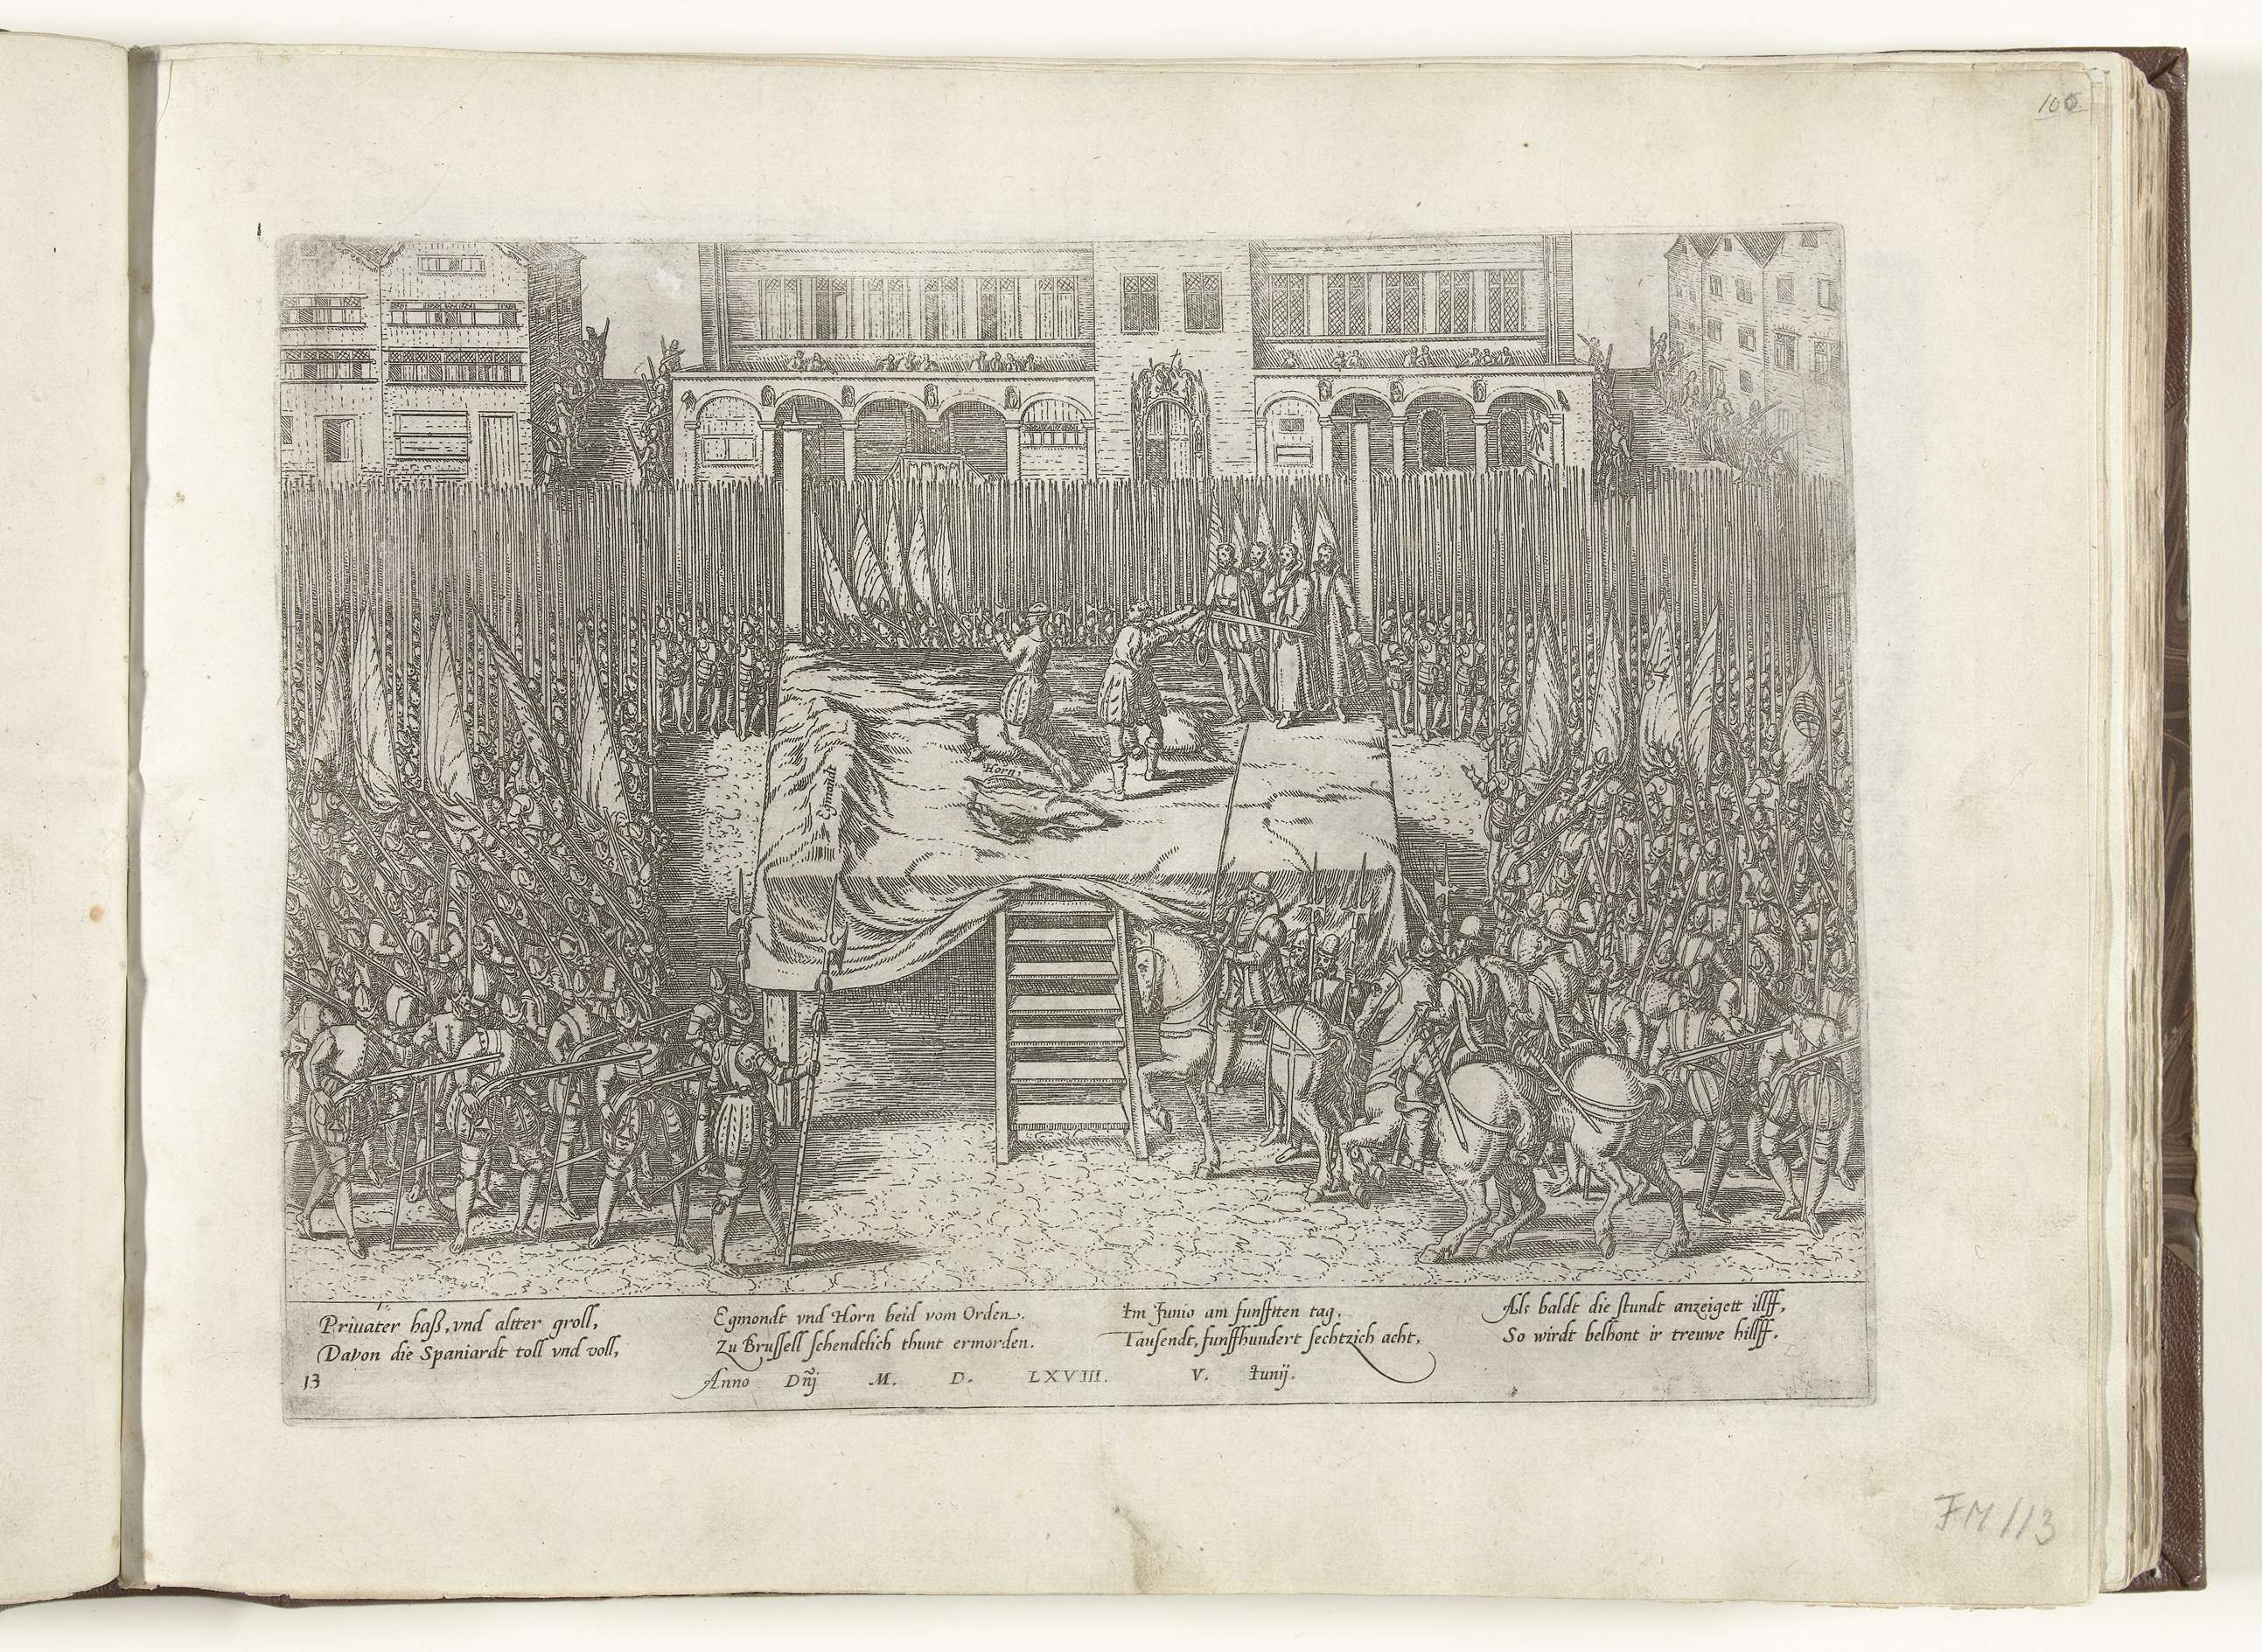 106
Egmondt
Horn.
Priuater haß, vnd altter groll,
Davon die Spaniardt toll vnd voll,
Egmondt vnd Horn beid vom Orden.
Zu Brussell schendtlich thunt ermorden.
Im Junio am funfften tag.
Tausendt, funffhundert sechtzich acht,
Als baldt die stundt anzeigett illff,
So wirdt belhont ir treuwe hillff.
13
Anno Dñj M. D. LXVIII. V. Junij.
FM 113